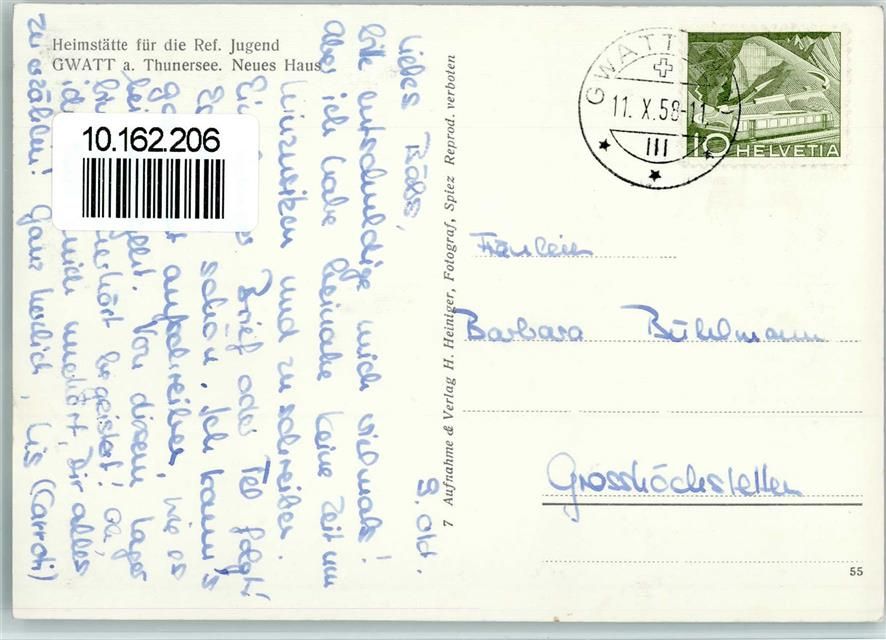 Heimstätte für die Ref. Jugend
GWATT a. Thunersee. Neues Haus
10.162.206
GWATT
11. X. 58-11
III
10 HELVETIA
9. Okt.
Liebes Bäbs,
bitte entschuldige mich vielmals!
Aber ich habe beinahe keine Zeit um
hinzusitzen und zu schreiben.
Ein Brief oder Tel folgt
schon. Ich kann's
aufschreiben, wie es
Von diesem Lager
begeistert! Oh,
mich unerhört, Dir alles
zu erzählen! Ganz herzlich, Lis (Carrot)
7 Aufnahme & Verlag H. Heiniger, Fotograf, Spiez Reprod. verboten
Fräulein
Barbara Bühlmann
Grosshöchstetten
55